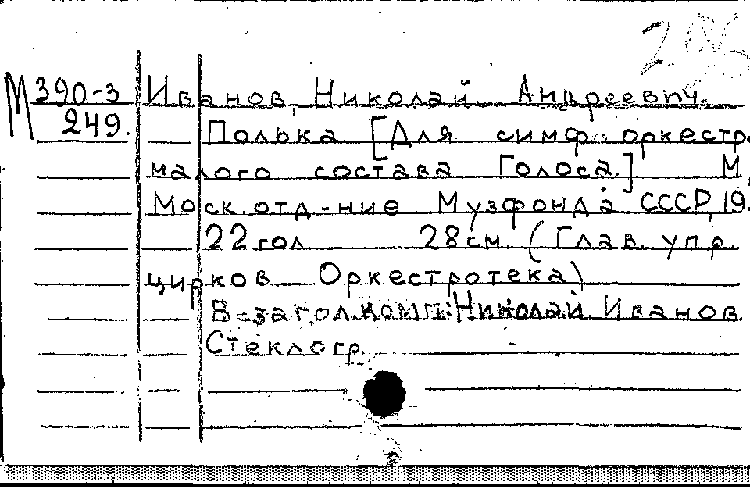 М 390-3 Иванов, Николай Андреевич.
249. Полька [Для симф. оркестр.
малого состава Голоса.] М,
Моск. отд-ние Музфонда СССР, 19.
22 гол 28см. (Глав. упр.
цирков Оркестротека)
В загол. комп: Николай Иванов
Стеклогр.